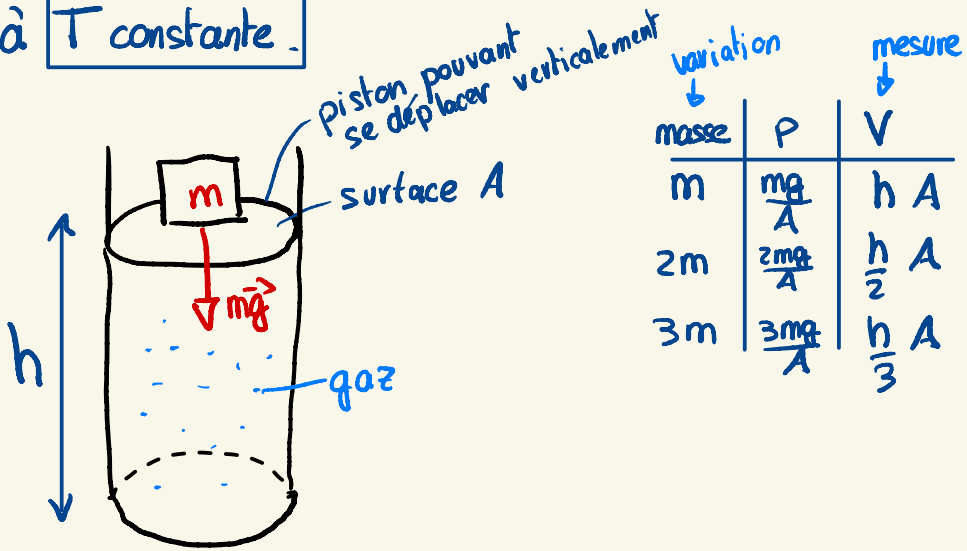 à T constante.
piston pouvant
se déplacer verticalement
surface A
m
mg⃗
h
gaz
variation mesure
masse P V
m mg/A h A
2m 2mg/A h/2 A
3m 3mg/A h/3 A